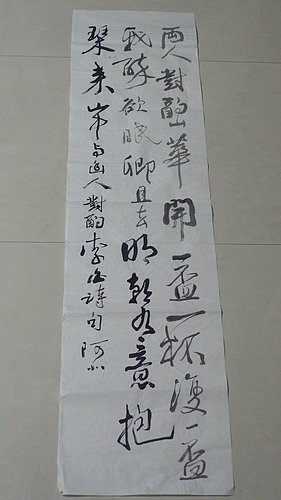 两人對酌山華開一盃一杯復一盃
我醉欲眠卿且去明朝有意抱
琴来 山中与幽人對酌李白詩句 阿小